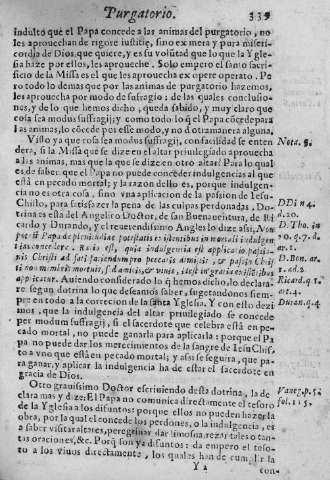 Purgatorio. 339
indulto que el Papa concede a las animas del purgatorio, no
les aprouechan de rigore iustitiæ, sino ex mera y pura miseri-
cordia de Dios, que quiere, y es su volũtad que lo que la Ygle-
sia haze por ellos, les aproueche. Solo empero el santo sacri-
ficio de la Missa es el que les aprouecha ex opere operato. Pe
ro todo lo demas que por las animas de purgatorio hazemos,
les aprouecha por modo de sufragio: de las quales conclusio-
nes, y de lo que hemos dicho, queda sabido, y muy claro que
cosa sea modus suffragij; y como todo lo q̃ el Papa cõcede para
las animas, lo cõcede por esse modo, y no d otra manera alguna.
Visto ya que cosa sea modus suffragij, con facilidad se enten
dera, si la Missa que se dize en el altar priuilegiado aprouecha
a las animas, mas que la que se dize en otro altar? Para lo qual
es de saber, que el Papa no puede conceder indulgencias al que
està en pecado mortal; y la razon dello es, porque indulgen-
cia no es otra cosa, sino vna aplicacion de la passion de Iesu-
Christo, para satisfazer la pena de las culpas perdonadas. Do-
trina es esta del Angelico Doctor, de san Buenauentura, de Ri
cardo, y Durando, y el reuerendissimo Angles lo dize assi: Non
potest Papa de plenitudine potestatis existentibus in mortali indulgen
tias concedere. Ratio est, quia indulgentia est applicatio passio-
nis Christi ad satisfaciendum pro peccatis dimissis, & passio Christi
non
applicatur. Auiendo considerado lo q̃ hemos dicho, lo declara-
re segun dotrina lo que deuamos saber, sugetandonos siem-
pre en todo a la correcion de la santa Yglesia. Y con esto dezi
mos, que la indulgencia del altar priuilegiado se concede
per modum suffragij, si el sacerdote que celebra està en pe-
cado mortal, no puede ganarla para aplicarla: porque el Pa
pa no puede dar los merecimientos de la sangre de Iesu Chris-
to a vno que està en pecado mortal; y assi se seguira, que pa-
ra ganar, y aplicar la indulgencia ha de estar el sacerdote en
gracia de Dios.
Otro grauissimo Doctor escriuiendo desta dotrina, la de
clara mas y dize: El Papa no comunica directamente el tesoro
de la Yglesia a los difuntos: porque ellos no pueden hazer la
obra, por la qual el concede los perdones, o la indulgencia, es
a saber visitar altares, peregrinar, dar limosna, rezar tales o tan-
tas oraciones, &c. Porq̃ son ya difuntos: da empero el teso-
ro a los viuos directamente, los quales han de cumplir la
Y 2 con-
Nota. 8.
D. Di n 4.
d. 20.
D. Tho. in
D. Bon. ar.
Ricard. q. 1.
ar. 4.
Duran. q. 4
Vaneg. p. 5.
fol. 115.